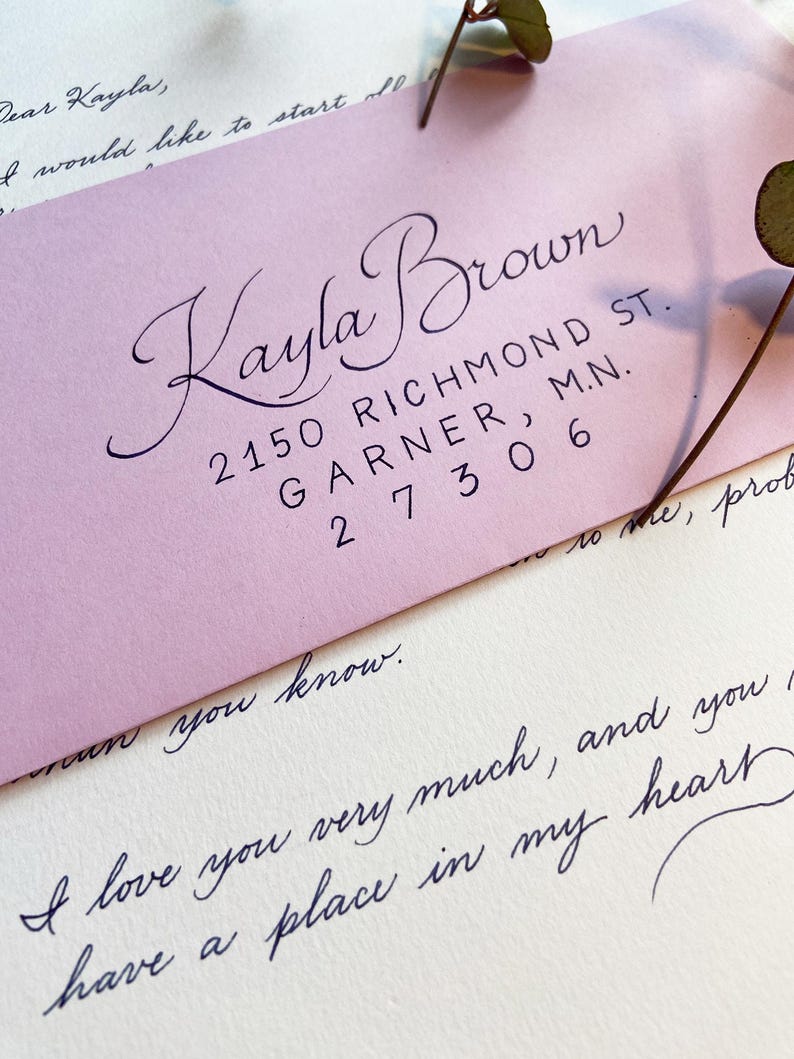 Dear Kayla,
I would like to start off
Kayla Brown
2150 RICHMOND ST.
GARNER, M.N.
27306
to me, prob
than you know.
I love you very much, and you
have a place in my heart